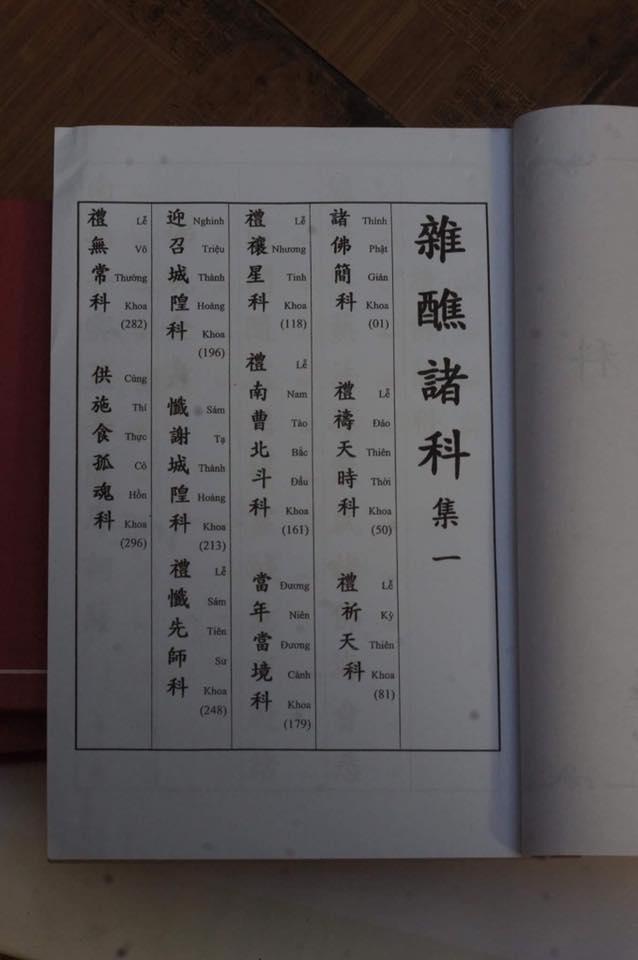 雜醮諸科 集一
諸佛簡科
Thỉnh Phật Giản Khoa (01)
禮禱天時科
Lễ Đảo Thiên Thời Khoa (50)
禮祈天科
Lễ Kỳ Thiên Khoa (81)
禮禳星科
Lễ Nhương Tinh Khoa (118)
禮南曹北斗科
Lễ Nam Tào Bắc Đẩu Khoa (161)
當年當境科
Đương Niên Đương Cảnh Khoa (179)
迎召城隍科
Nghinh Triệu Thành Hoàng Khoa (196)
懺謝城隍科
Sám Tạ Thành Hoàng Khoa (213)
禮懺先師科
Lễ Sám Tiên Sư Khoa (248)
禮無常科
Lễ Vô Thường Khoa (282)
供施食孤魂科
Cúng Thí Thực Cô Hồn Khoa (296)